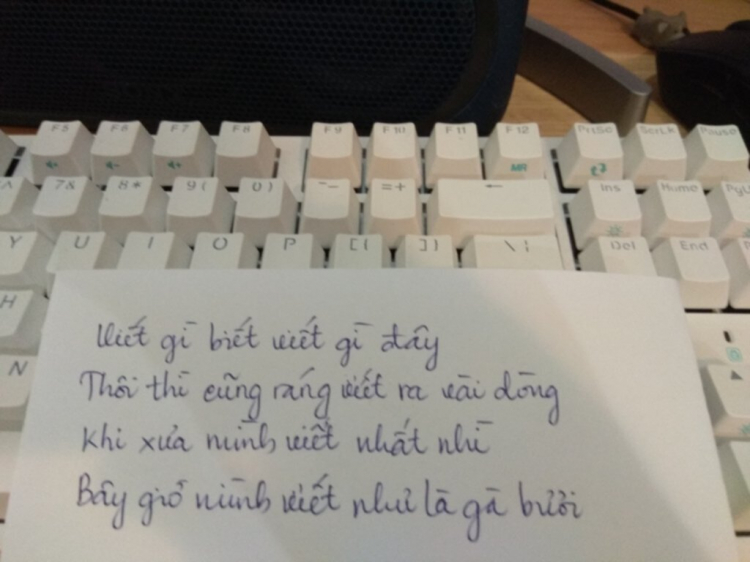 F5 F6 F7 F8 F9 F10 F11 F12 PrtSc ScrLk Pause
7& 8* 9( 0) -_ =+ ← Ins Home PgU
Y U I O P [{ ]} \| Del End
H
N
Viết gì biết viết gì đây
Thôi thì cũng ráng viết ra vài dòng
Khi xưa mình viết nhất nhì
Bây giờ mình viết như là gà bưởi